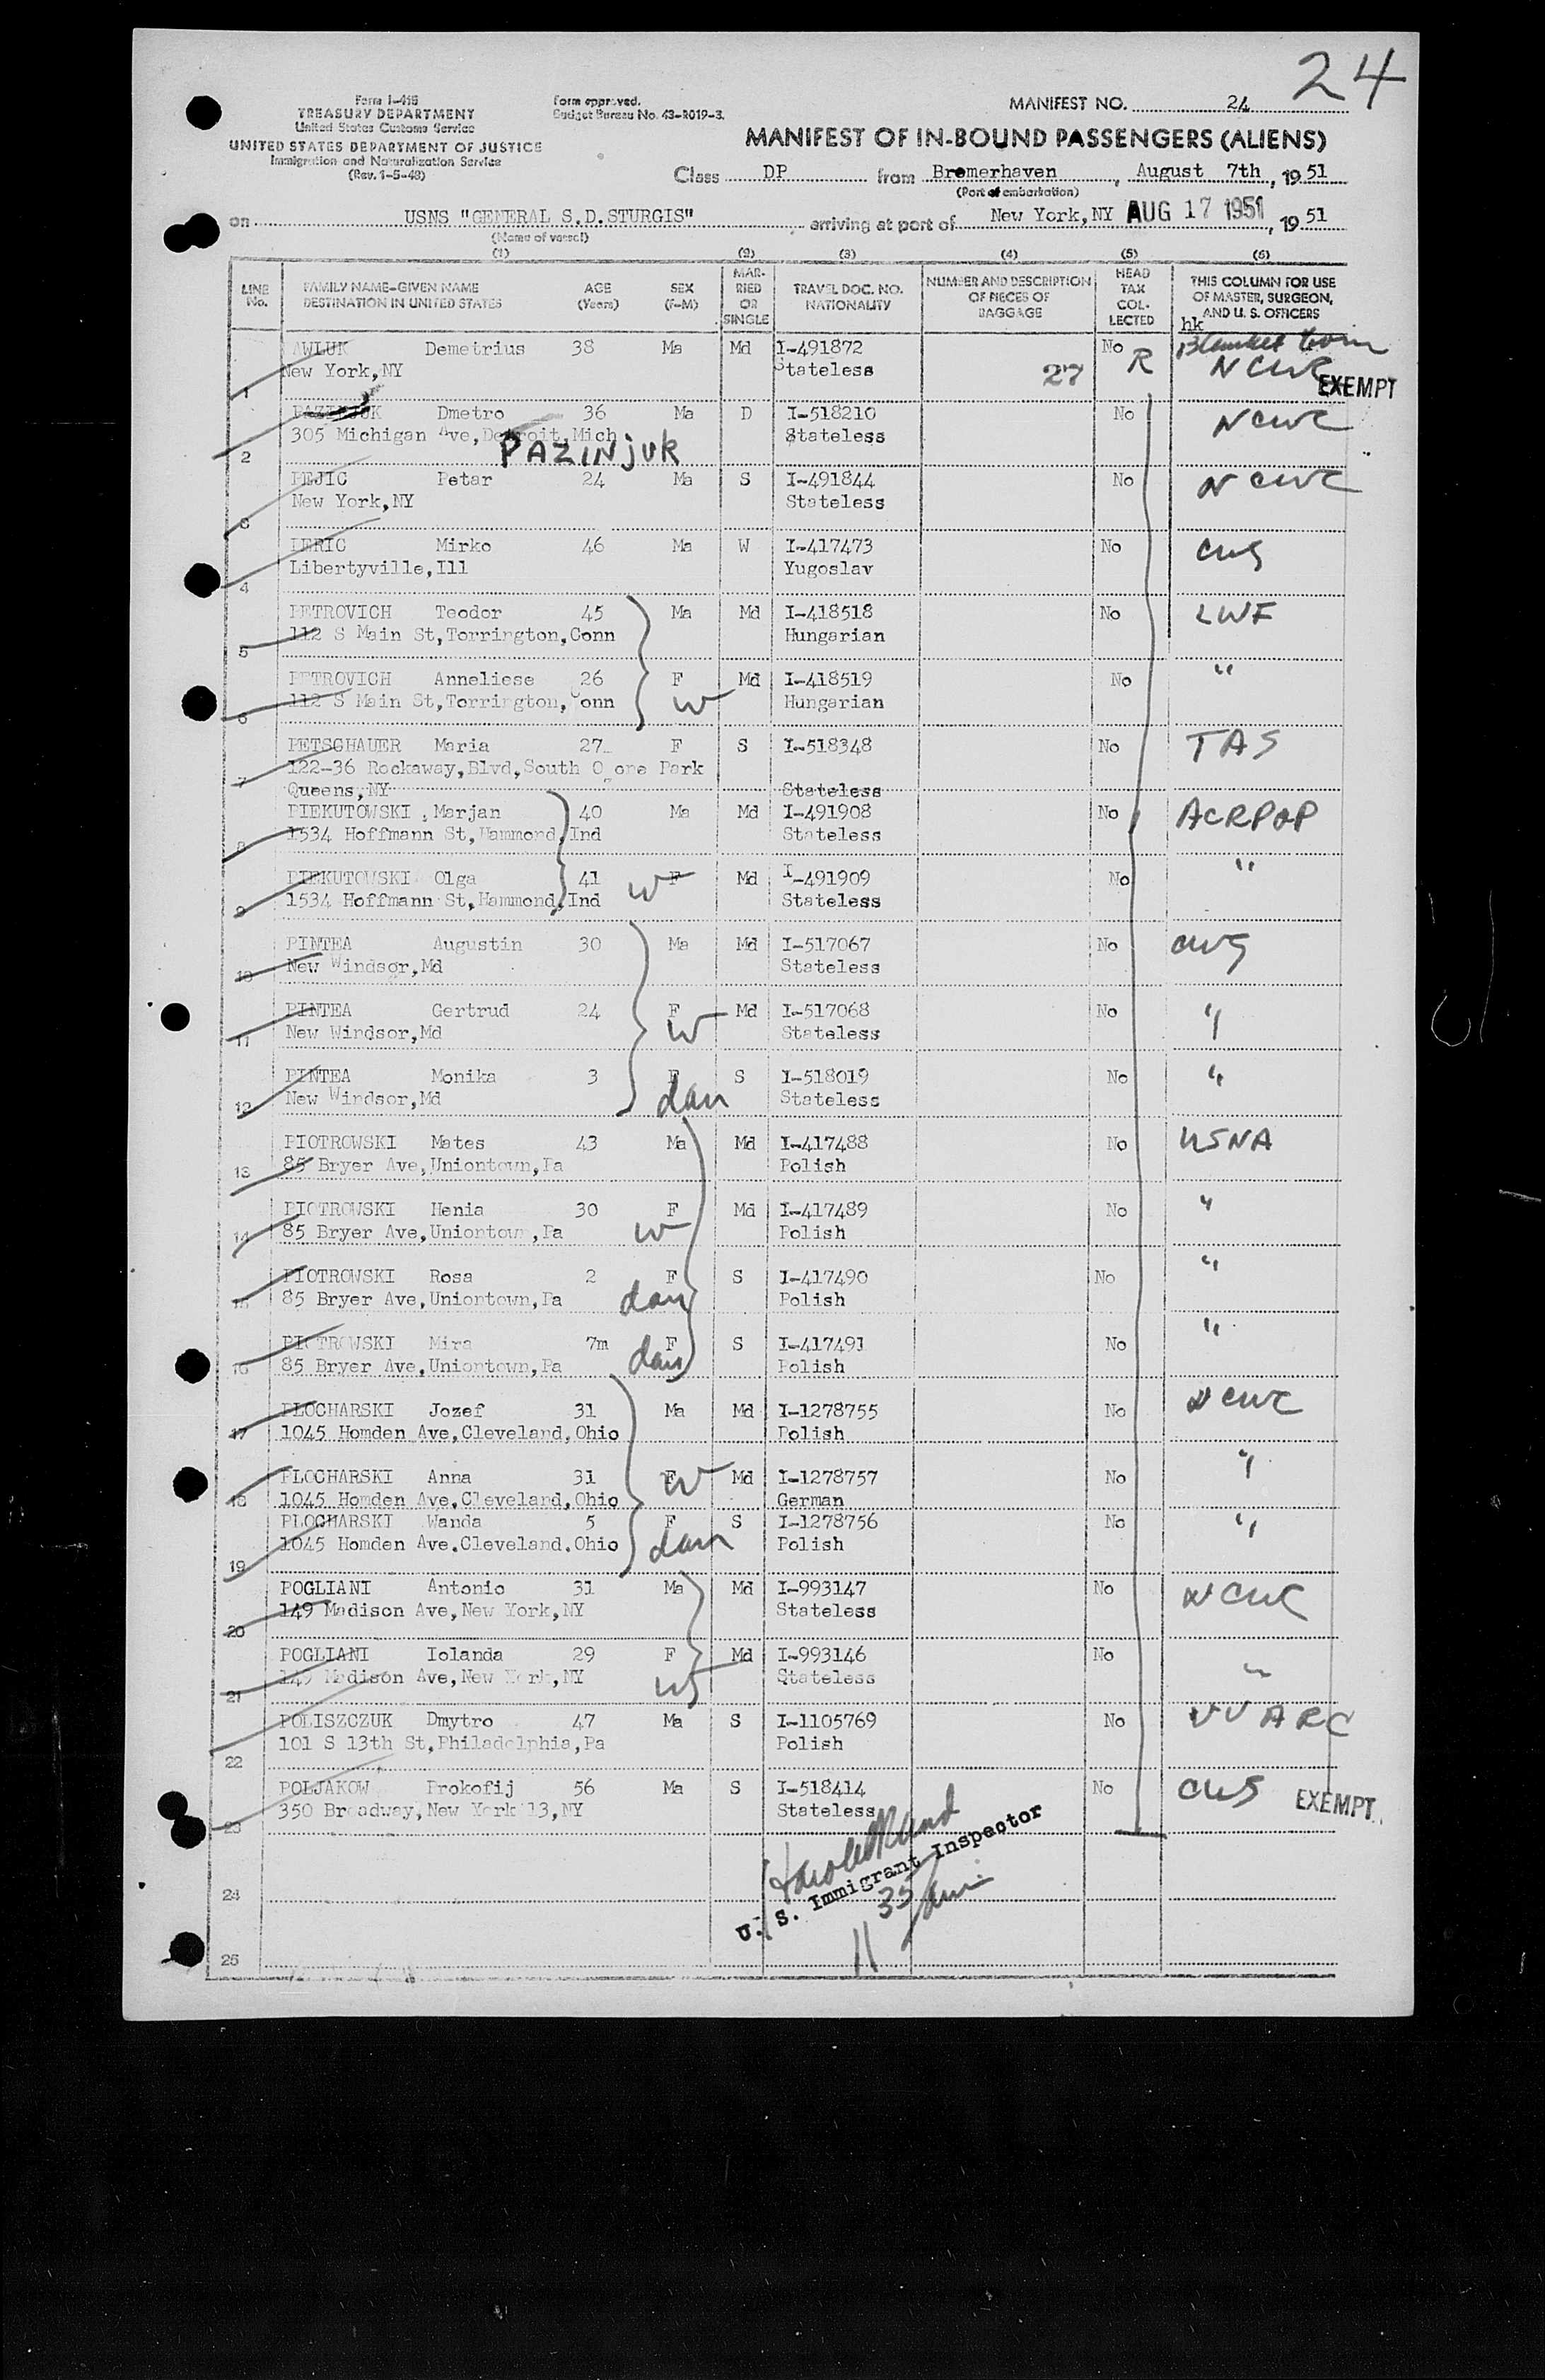 24
Form I-415
TREASURY DEPARTMENT
United States Customs Service
UNITED STATES DEPARTMENT OF JUSTICE
Immigration and Naturalization Service
(Rev. 1-5-48)
Form approved.
Budget Bureau No. 43-R019-3.
MANIFEST NO. 24
MANIFEST OF IN-BOUND PASSENGERS (ALIENS)
Class DP from Bremerhaven, August 7th, 1951
(Port of embarkation)
on USNS "GENERAL S.D.STURGIS" arriving at port of New York,NY AUG 17 1951, 1951
(Name of vessel)
(1) (2) (3) (4) (5) (6)
LINE No. FAMILY NAME-GIVEN NAME DESTINATION IN UNITED STATES AGE (Years) SEX (F-M) MARRIED OR SINGLE TRAVEL DOC. NO. NATIONALITY NUMBER AND DESCRIPTION OF PIECES OF BAGGAGE HEAD TAX COLLECTED THIS COLUMN FOR USE OF MASTER, SURGEON, AND U. S. OFFICERS
hk
Blanket
AWLUK Demetrius 38 Ma Md I-491872 27 No R NCWC
1 New York,NY Stateless EXEMPT
Dmetro 36 Ma D I-518210 No NCWC
305 Michigan Ave,Detroit,Mich Stateless
2 PAZINjUK
PEJIC Petar 24 Ma S I-491844 No NCWC
3 New York,NY Stateless
PERIC Mirko 46 Ma W I-417473 No CWS
4 Libertyville,Ill Yugoslav
PETROVICH Teodor 45 Ma Md I-418518 No LWF
5 112 S Main St,Torrington,Conn Hungarian
PETROVICH Anneliese 26 F Md I-418519 No "
6 112 S Main St,Torrington,Conn W Hungarian
PETSCHAUER Maria 27 F S I-518348 No TAS
7 122-36 Rockaway,Blvd,South Ozone Park
Queens,NY Stateless
PIEKUTOWSKI Marjan 40 Ma Md I-491908 No ACRPOP
8 1534 Hoffmann St,Hammond,Ind Stateless
PIEKUTOWSKI Olga 41 W F Md I-491909 No "
9 1534 Hoffmann St,Hammond,Ind Stateless
PINTEA Augustin 30 Ma Md I-517067 No CWS
10 New Windsor,Md Stateless
PINTEA Gertrud 24 F Md I-517068 No "
11 New Windsor,Md W Stateless
PINTEA Monika 3 F S I-518019 No "
12 New Windsor,Md dau Stateless
PIOTROWSKI Mates 43 Ma Md I-417488 No USNA
13 85 Bryer Ave,Uniontown,Pa Polish
PIOTROWSKI Henia 30 F Md I-417489 No "
14 85 Bryer Ave,Uniontown,Pa W Polish
PIOTROWSKI Rosa 2 F S I-417490 No "
15 85 Bryer Ave,Uniontown,Pa dau Polish
PIOTROWSKI Mira 7m F S I-417491 No "
16 85 Bryer Ave,Uniontown,Pa dau Polish
PLOCHARSKI Jozef 31 Ma Md I-1278755 No NCWC
17 1045 Homden Ave,Cleveland,Ohio Polish
PLOCHARSKI Anna 31 F W Md I-1278757 No "
18 1045 Homden Ave,Cleveland,Ohio German
PLOCHARSKI Wanda 5 F S I-1278756 No "
19 1045 Homden Ave.Cleveland.Ohio dau Polish
POGLIANI Antonio 31 Ma Md I-993147 No NCWC
20 149 Madison Ave,New York,NY Stateless
POGLIANI Iolanda 29 F Md I-993146 No "
21 149 Madison Ave,New York,NY W Stateless
POLISZCZUK Dmytro 47 Ma S I-1105769 No UUARC
22 101 S 13th St,Philadelphia,Pa Polish
POLJAKOW Prokofij 56 Ma S I-518414 No CWS EXEMPT
23 350 Broadway,New York 13,NY Stateless
U. S. Immigrant Inspector
24
11 35 am
25